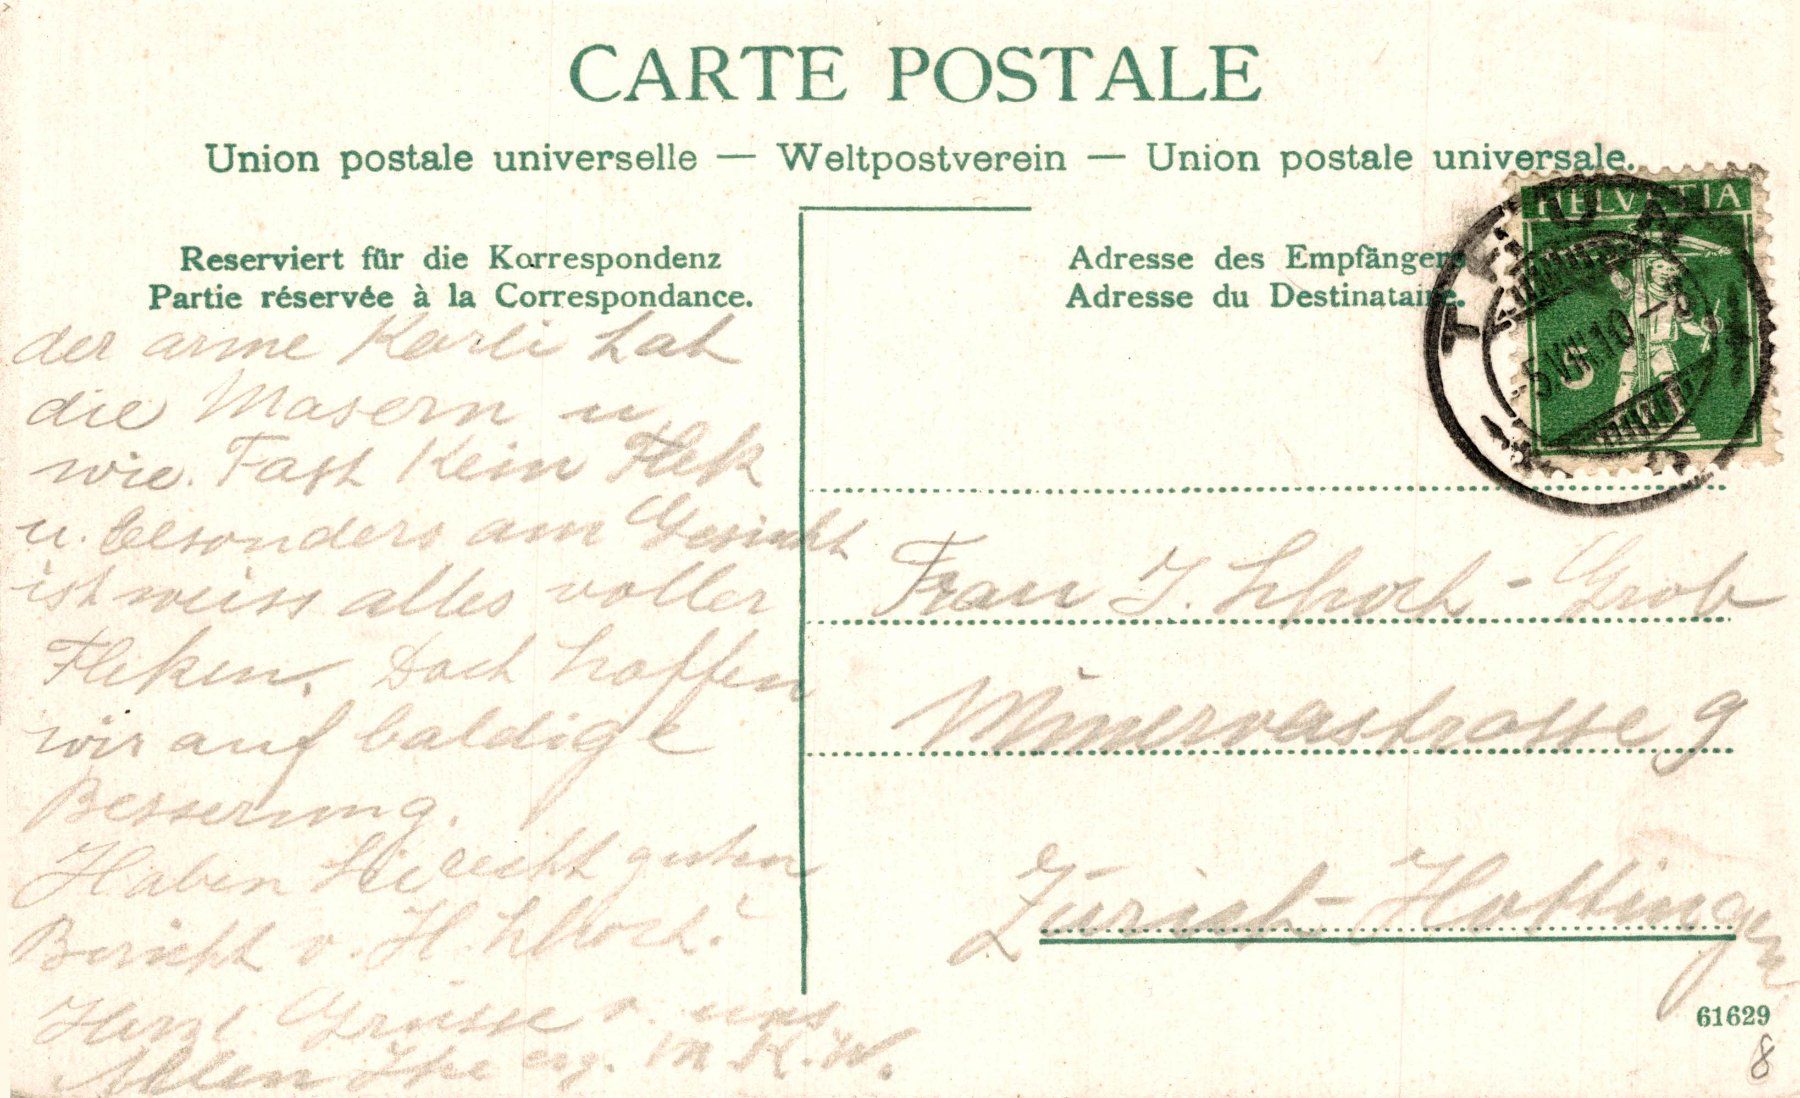 CARTE POSTALE
Union postale universelle — Weltpostverein — Union postale universale.
Reserviert für die Korrespondenz
Partie réservée à la Correspondance.
Adresse des Empfängers
Adresse du Destinataire.
HELVETIA
5
THUN
5.VIII.10
der arme Karli hat
die Masern u
wie. Fast kein Flek
u. besonders am Gesicht
ist weiss alles voller
Fleken. Doch hoffen
wir auf baldige
Besserung.
Haben Sie recht guten
Bericht v. H. Schoch?
Herzl. Grüsse v. uns
Allen Ihre erg. M. K. W.
Frau J. Schoch-Grob
Minervastrasse 9
Zürich-Hottingen
61629
8